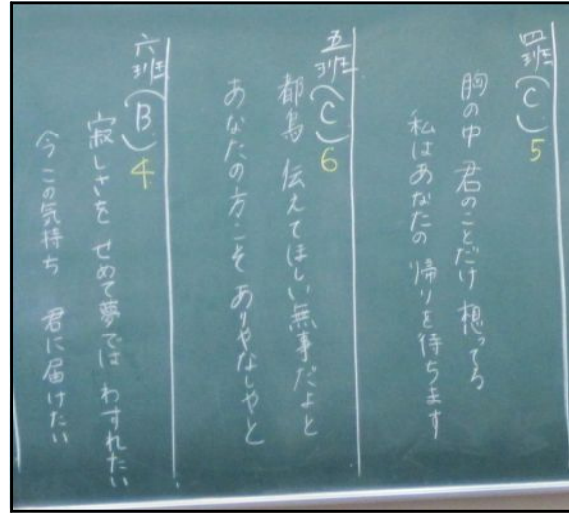 四班(C)5
胸の中 君のことだけ 想ってる
私はあなたの 帰りを待ちます
五班(C)6
都鳥 伝えてほしい 無事だよと
あなたの方こそ ありやなしやと
六班(B)4
寂しさを せめて夢では わすれたい
今この気持ち 君に届けたい